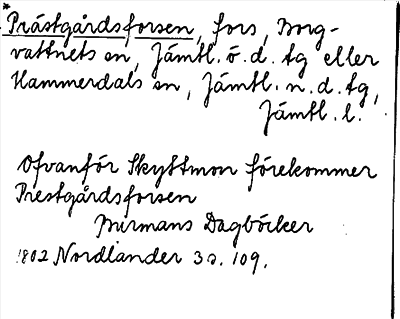 * Prästgårdsforsen, fors, Borg-
vattnets sn, Jämtl. ö. d. tg eller
Hammerdals sn, Jämtl. n. d. tg,
Jämtl. l.
Ofvanför Skyttmon förekommer
Prestgårdsforsen
Burmans Dagböcker
1802 Nordlander 3 s. 109.